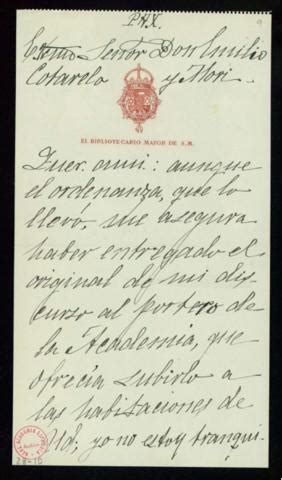 9
Excmo Señor Don Emilio
Cotarelo y Mori.
EL BIBLIOTECARIO MAYOR DE S.M.
Quer. ami.: aunque
el ordenanza, que lo
llevó, me asegura
haber entregado el
original de mi dis-
curso al portero de
la Academia, que
ofrecía subirlo a
las habitaciones de
Ud; yo no estoy tranqui-
REAL ACADEMIA ESPAÑOLA
28-10